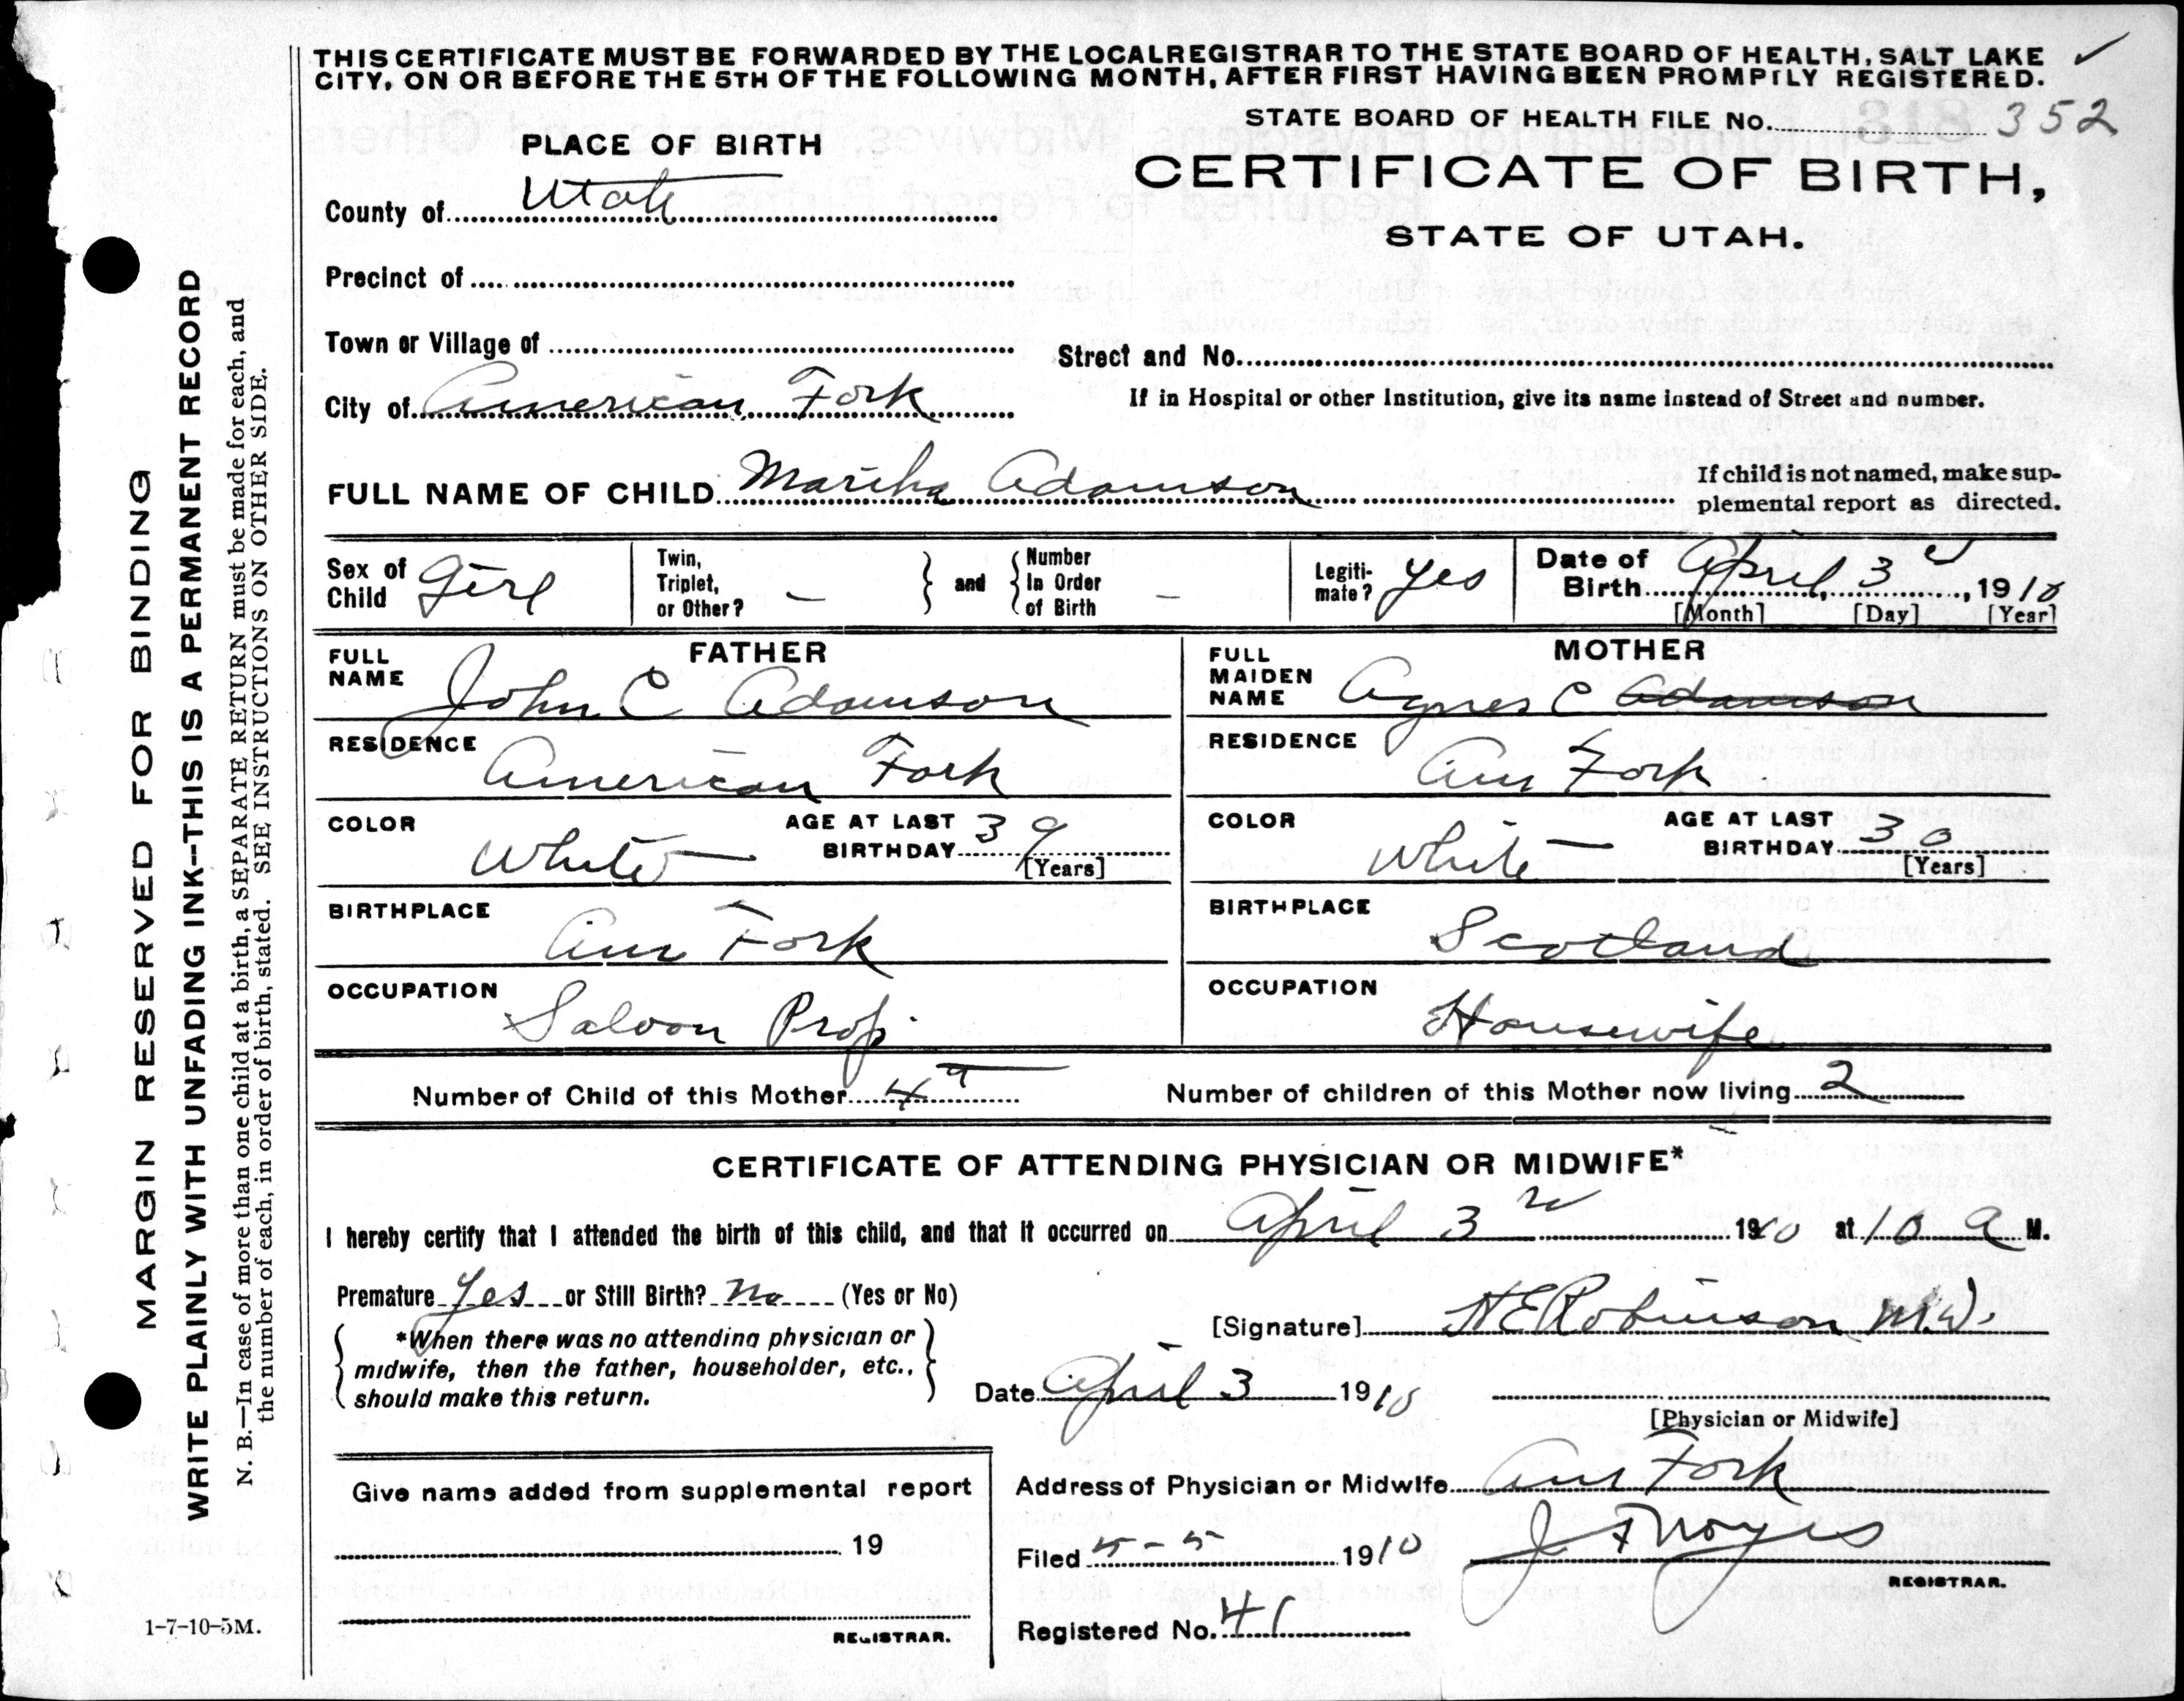 THIS CERTIFICATE MUST BE FORWARDED BY THE LOCAL REGISTRAR TO THE STATE BOARD OF HEALTH, SALT LAKE
CITY, ON OR BEFORE THE 5TH OF THE FOLLOWING MONTH, AFTER FIRST HAVING BEEN PROMPTLY REGISTERED.
STATE BOARD OF HEALTH FILE No. 352
PLACE OF BIRTH
CERTIFICATE OF BIRTH,
STATE OF UTAH.
County of Utah
Precinct of
Town or Village of
Street and No.
City of American Fork
If in Hospital or other Institution, give its name instead of Street and number.
FULL NAME OF CHILD Martha Adamson
If child is not named, make sup-
plemental report as directed.
Sex of Child Girl
Twin, Triplet, or Other? –
and
Number In Order of Birth –
Legiti-
mate? yes
Date of Birth April 3d, 1910
[Month] [Day] [Year]
FATHER
FULL NAME John C Adamson
RESIDENCE American Fork
COLOR White
AGE AT LAST BIRTHDAY 39 [Years]
BIRTHPLACE Am Fork
OCCUPATION Saloon Prop.
MOTHER
FULL MAIDEN NAME Agnes C Adamson
RESIDENCE Am Fork
COLOR White
AGE AT LAST BIRTHDAY 30 [Years]
BIRTHPLACE Scotland
OCCUPATION Housewife
Number of Child of this Mother 4
Number of children of this Mother now living 2
CERTIFICATE OF ATTENDING PHYSICIAN OR MIDWIFE*
I hereby certify that I attended the birth of this child, and that it occurred on April 3rd 1910 at 10 A M.
Premature Yes or Still Birth? No (Yes or No)
*When there was no attending physician or
midwife, then the father, householder, etc.,
should make this return.
[Signature] H E Robinson M.D.
Date April 3 1910
[Physician or Midwife]
Give name added from supplemental report
19
REGISTRAR.
Address of Physician or Midwife Am Fork
Filed 5-5 1910 J F Noyes
REGISTRAR.
Registered No. 41
MARGIN RESERVED FOR BINDING
WRITE PLAINLY WITH UNFADING INK--THIS IS A PERMANENT RECORD
N. B.—In case of more than one child at a birth, a SEPARATE RETURN must be made for each, and
the number of each, in order of birth, stated. SEE INSTRUCTIONS ON OTHER SIDE.
1-7-10-5M.